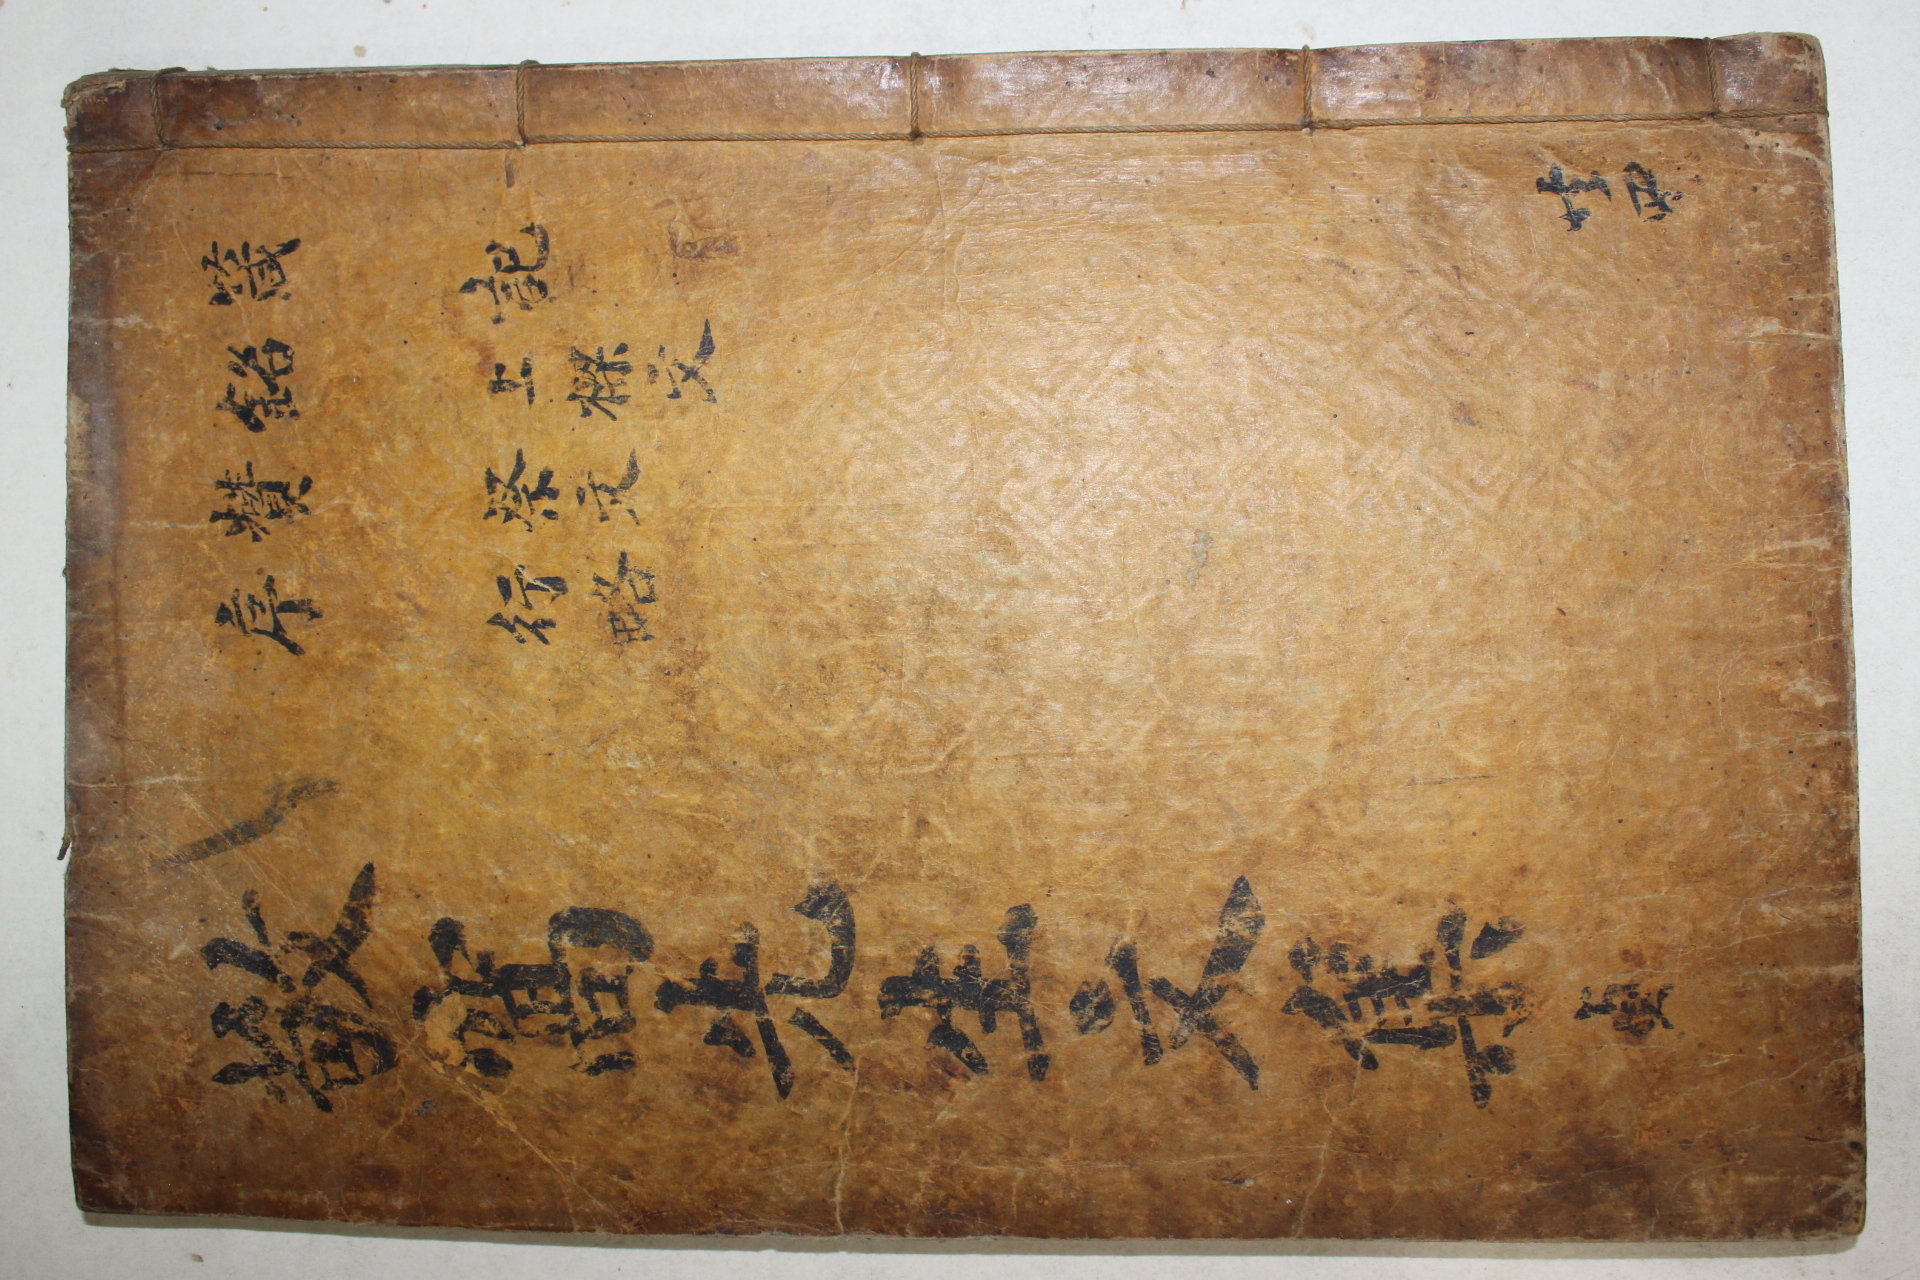 箴 記
銘 上樑文
賛 祭文
序 行略
共四
敬窩先生文集 貞